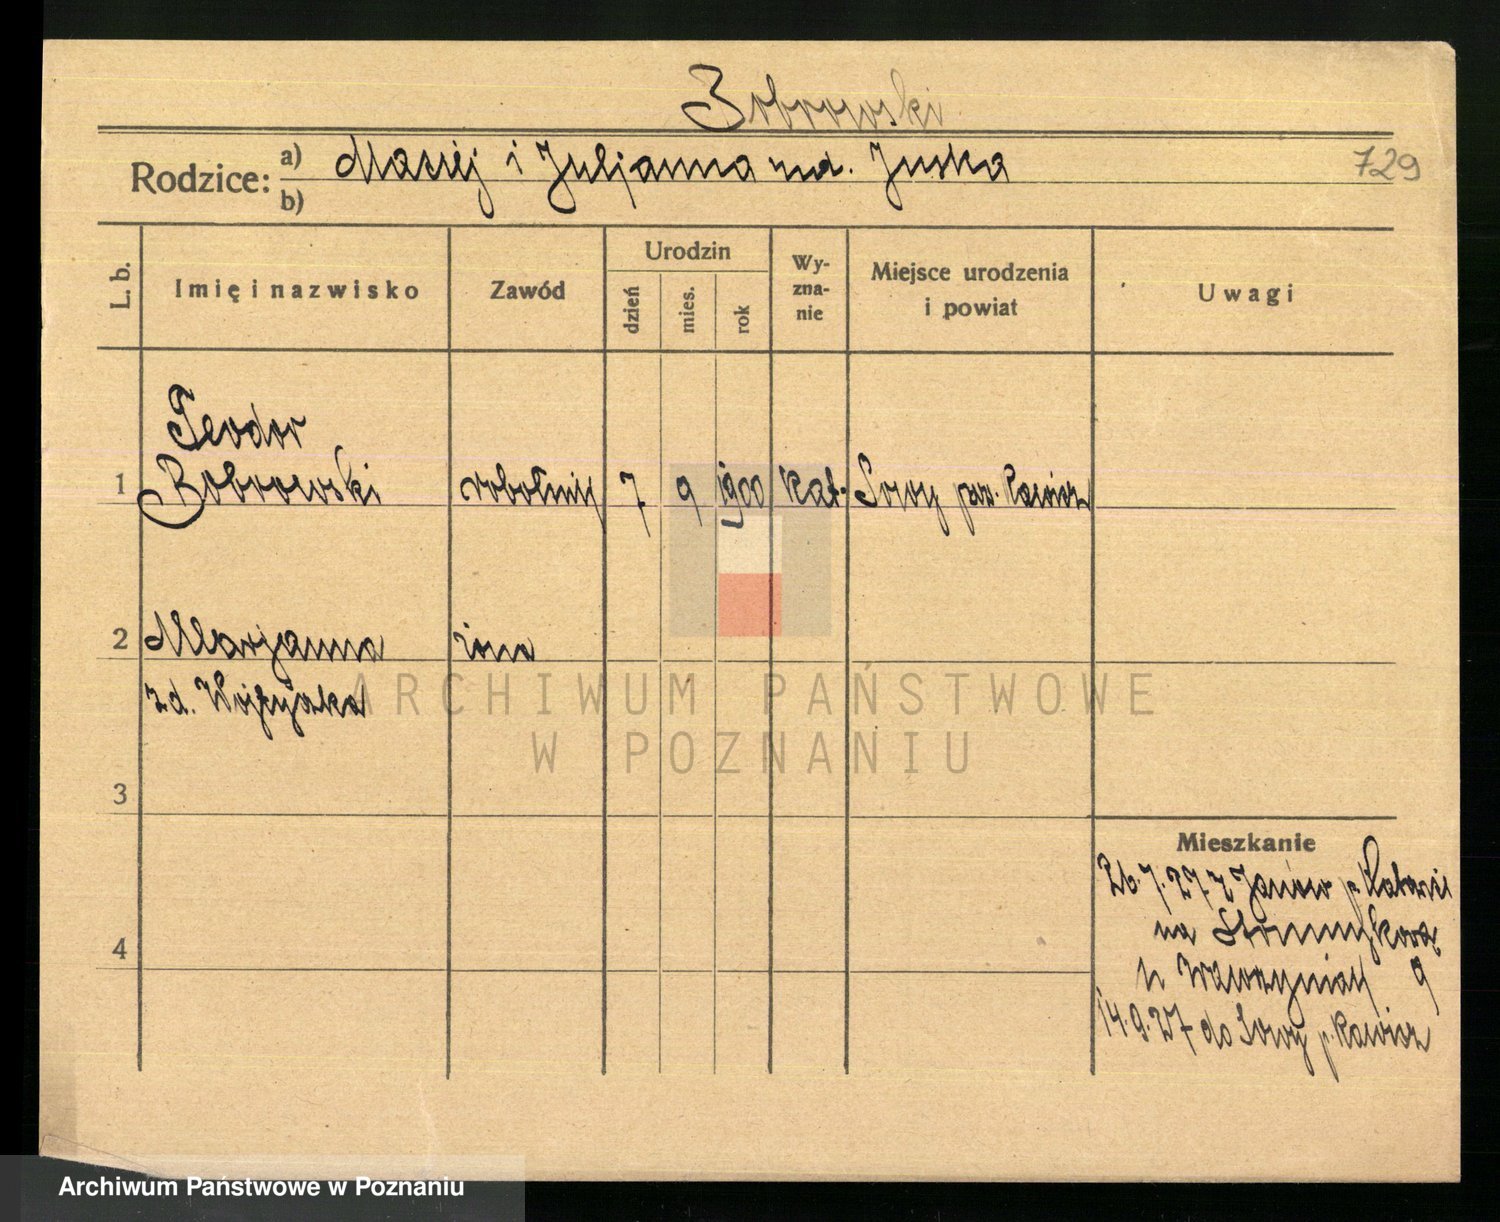 Bobrowski
Rodzice: a) Maciej i Juljanna zd. Juska
b)
729
L. b.
Imię i nazwisko
Zawód
Urodzin
dzień
mies.
rok
Wy-
zna-
nie
Miejsce urodzenia
i powiat
Uwagi
Teodor
1 Bobrowski robotnik 7 9 1900 kat. Sowy pow. Rawicz
2 Marjanna żona
z d.
3
4
Mieszkanie
26.7.27 z Janów p.
na
u Wawrzyniak 9
14.9.27 do Sowy p. Rawicz
ARCHIWUM PAŃSTWOWE
W POZNANIU
Archiwum Państwowe w Poznaniu